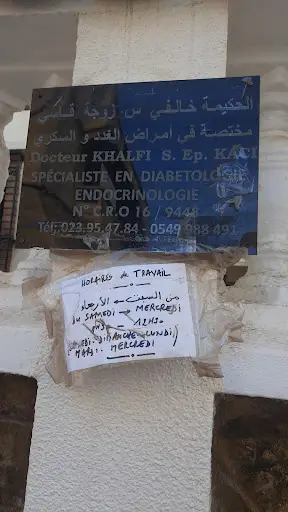 الحكيمة خالفي س. زوجة قاسي
مختصة في أمراض الغدد و السكري
Docteur KHALFI S. Ep. KACI
SPÉCIALISTE EN DIABETOLOGIE
ENDOCRINOLOGIE
N° C.R.O 16 / 9448
Tél: 023.95.47.84 - 0549 988 491
HORAIRES de TRAVAIL
من السبت ← الأربعاء
Du SAMEDI → MERCREDI
12H30
DIMANCHE LUNDI
MERCREDI